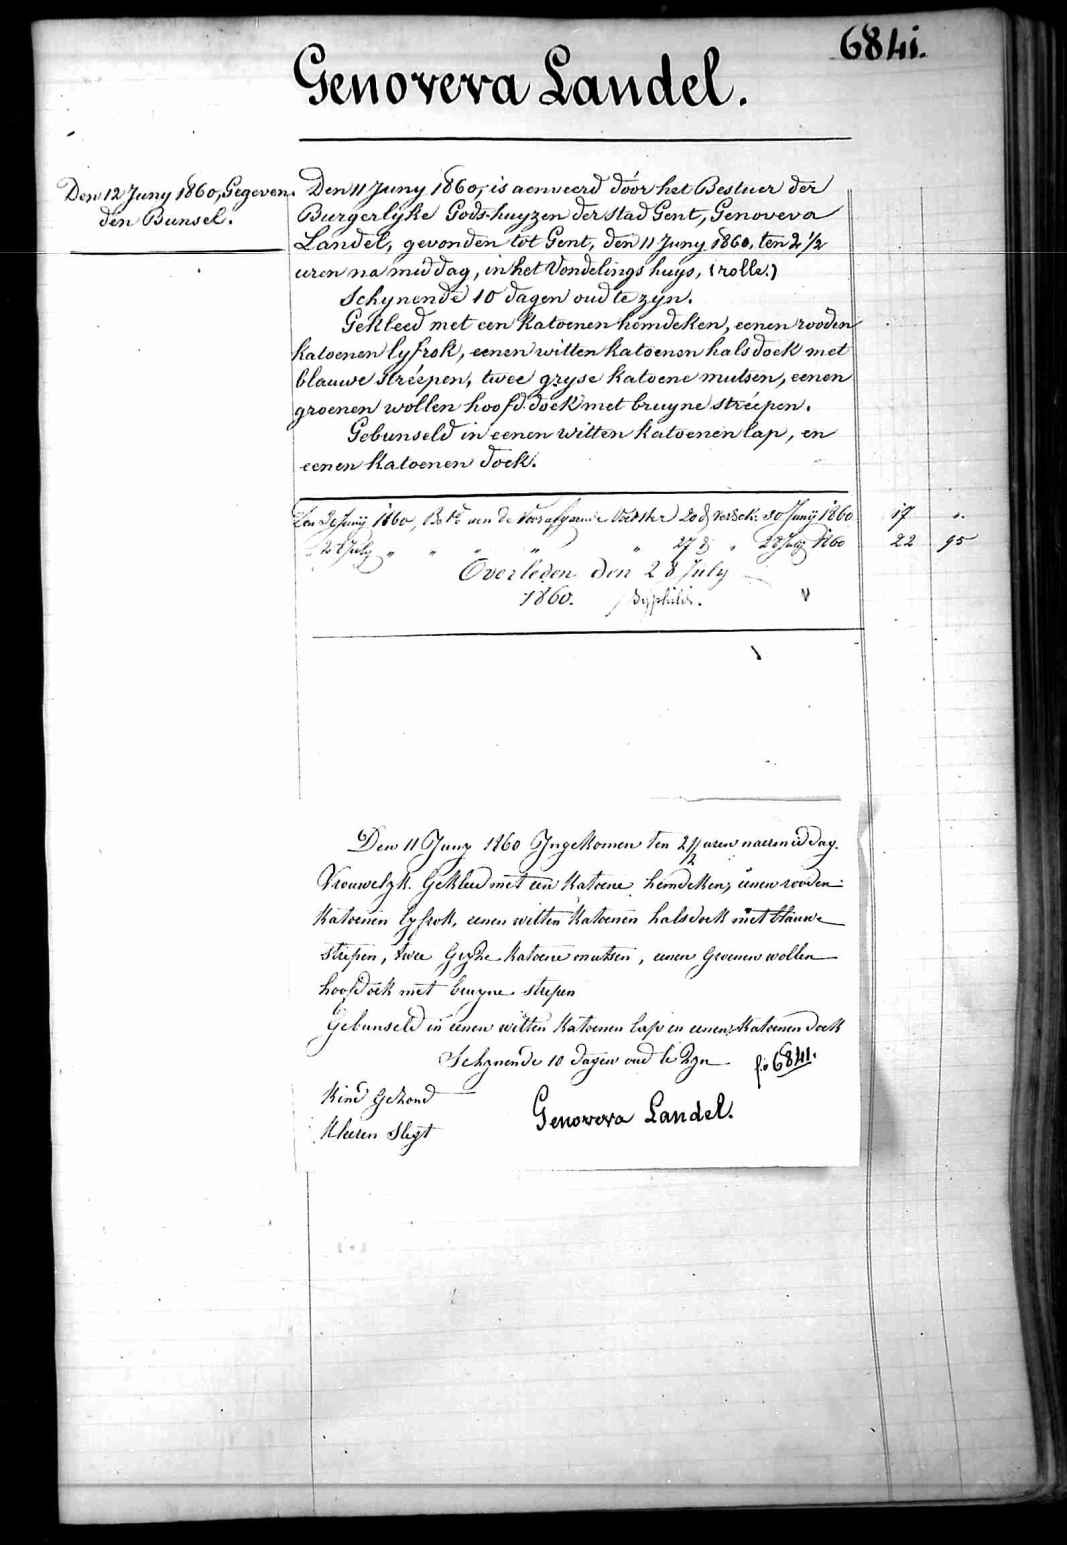 6841.
Genoveva Landel.
Den 12 Juny 1860, Gegeven
den Bunsel.
Den 11 Juny 1860, is aenveerd door het Bestuer der
Burgerlyke Gods-huyzen der stad Gent, Genoveva
Landel, gevonden tot Gent, den 11 Juny 1860, ten 2 1/2
uren na middag, in het Vondelings huys, (rolle.)
Schynende 10 dagen oud te zyn.
Gekleed met een katoenen hemdeken, eenen rooden
katoenen lyfrok, eenen witten katoenen halsdoek met
blauwe stréepen, twee gryse katoene mutsen, eenen
groenen wollen hoofd.doek met bruyne stréepen.
Gebunseld in eenen witten katoenen lap, en
eenen katoenen doek.
Den Juny 1860, aen de Voorafgaende Voedster 20 30 Juny 1860 17 "
July " " " " " 27 " 28 July 1860 22 95
Overleden den 28 July
1860. Syphilis.
Den 11 Juny 1860 Ingekomen ten 2 1/2 uren naermiddag.
Vrouwelyk. Gekleed met een katoene hemdeken, eenen rooden
katoenen lyfrok, eenen witten katoenen halsdoek met blauwe
strepen, twee Gryze katoene mutsen, eenen Groenen wollen
hoofdoek met bruyne strepen
Gebunseld in eenen witten katoenen lap en eenen katoenen doek
Schynende 10 dagen oud te Zyn fo 6841.
Kind Gezond
Genoveva Landel.
Kleeren Slegt